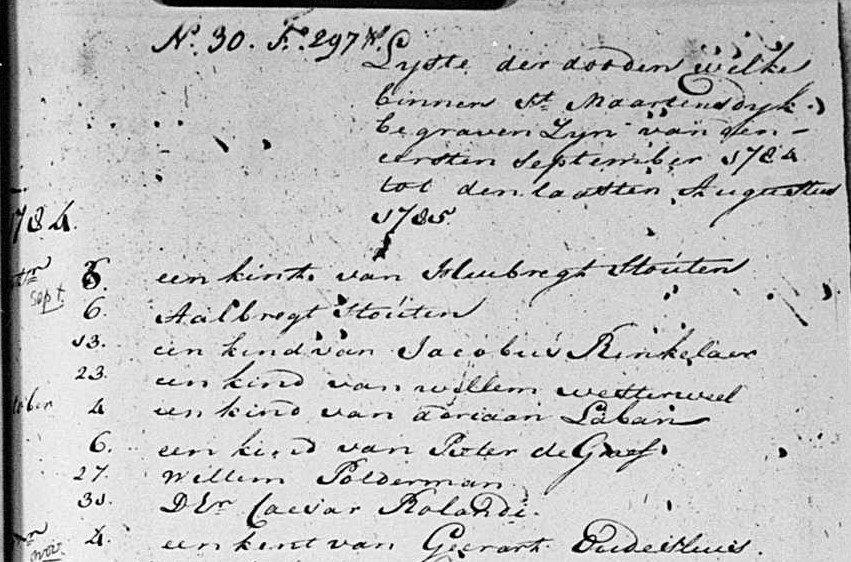 No. 30. Fo. 297 vo.
Lyste der dooden welke
binnen St. Maartensdyk
begraven Zyn van den
eersten September 1784
tot den laatsten Augustus
1785
1784.
een kint van Huibregt Stouten
sept.
6. Aalbregt Stouten
13. een kind van Jacobus Rinkelaer
23. een kind van willem westerweel
tober 4 een kind van adriaan Laban
6. een kind van Pieter de Graef
27. Willem Polderman
31. DEr Caesar Rolandi.
4. een kint van Geerart Oudesluis.
nov.